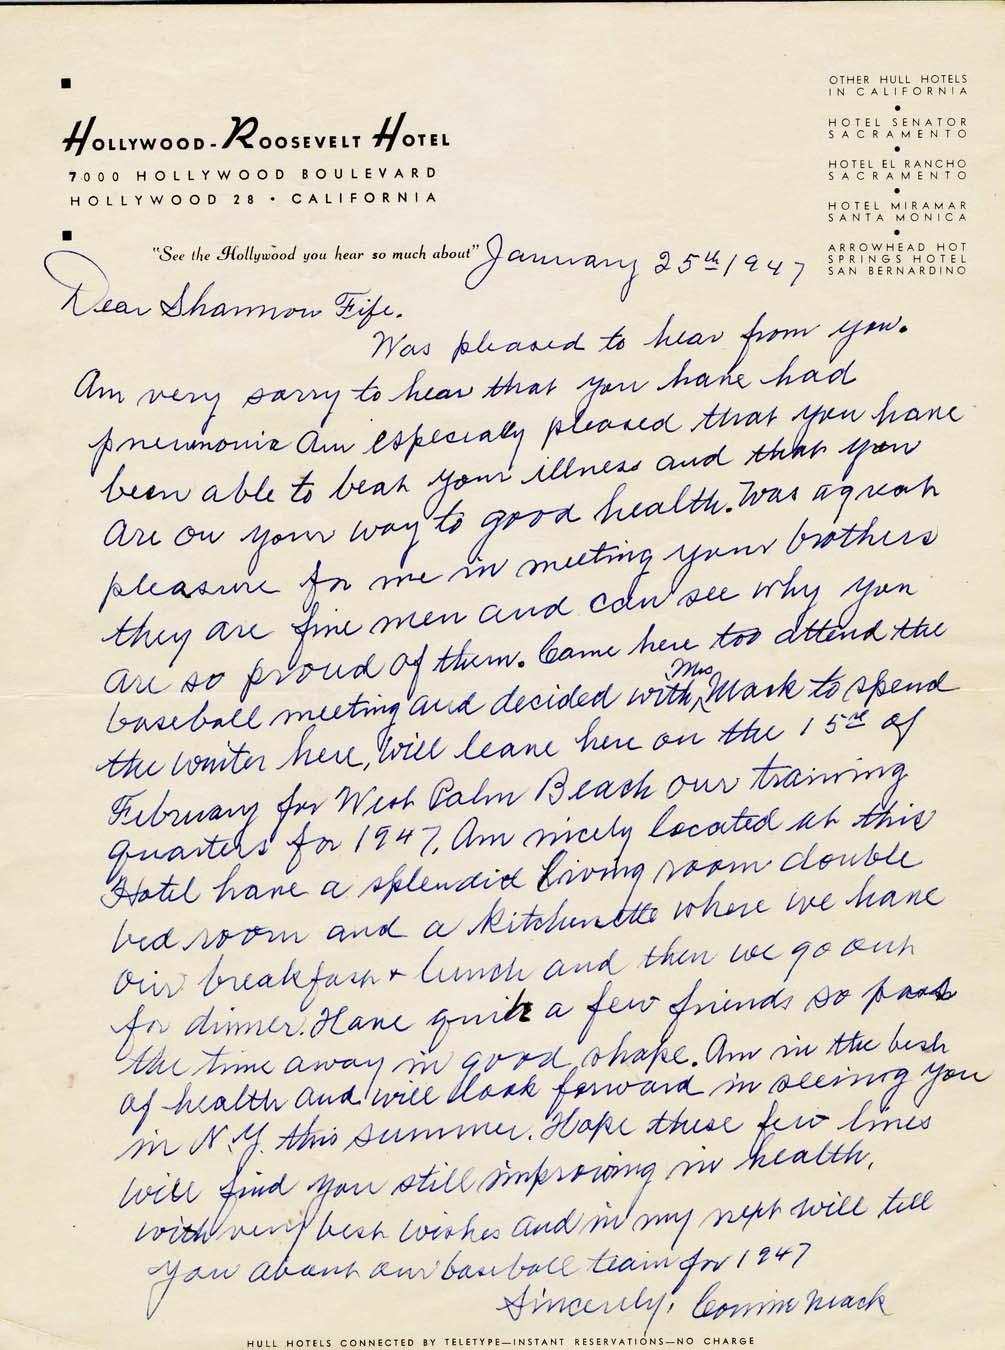 HOLLYWOOD-ROOSEVELT HOTEL
7000 HOLLYWOOD BOULEVARD
HOLLYWOOD 28 • CALIFORNIA
"See the Hollywood you hear so much about"
OTHER HULL HOTELS
IN CALIFORNIA
•
HOTEL SENATOR
SACRAMENTO
•
HOTEL EL RANCHO
SACRAMENTO
•
HOTEL MIRAMAR
SANTA MONICA
•
ARROWHEAD HOT
SPRINGS HOTEL
SAN BERNARDINO
January 25th 1947
Dear Shannon Fife.
Was pleased to hear from you.
Am very sorry to hear that you have had
pneumonia Am especially pleased that you have
been able to beat your illness and that you
are on your way to good health. Was a great
pleasure for me in meeting your brothers
they are fine men and can see why you
are so proud of them. Came here too attend the
baseball meeting and decided with Mrs Mack to spend
the winter here, Will leave here on the 15th of
February for West Palm Beach our training
quarters for 1947. Am nicely located at this
Hotel have a splendid living room double
bed room and a kitchenette where we have
our breakfast + lunch and then we go out
for dinner. Have quite a few friends so pass
the time away in good shape. Am in the best
of health and will look forward in seeing you
in N.Y. this summer. Hope these few lines
will find you still improving in health.
with very best wishes and in my next will tell
you about our baseball team for 1947
Sincerely, Connie Mack
HULL HOTELS CONNECTED BY TELETYPE—INSTANT RESERVATIONS—NO CHARGE